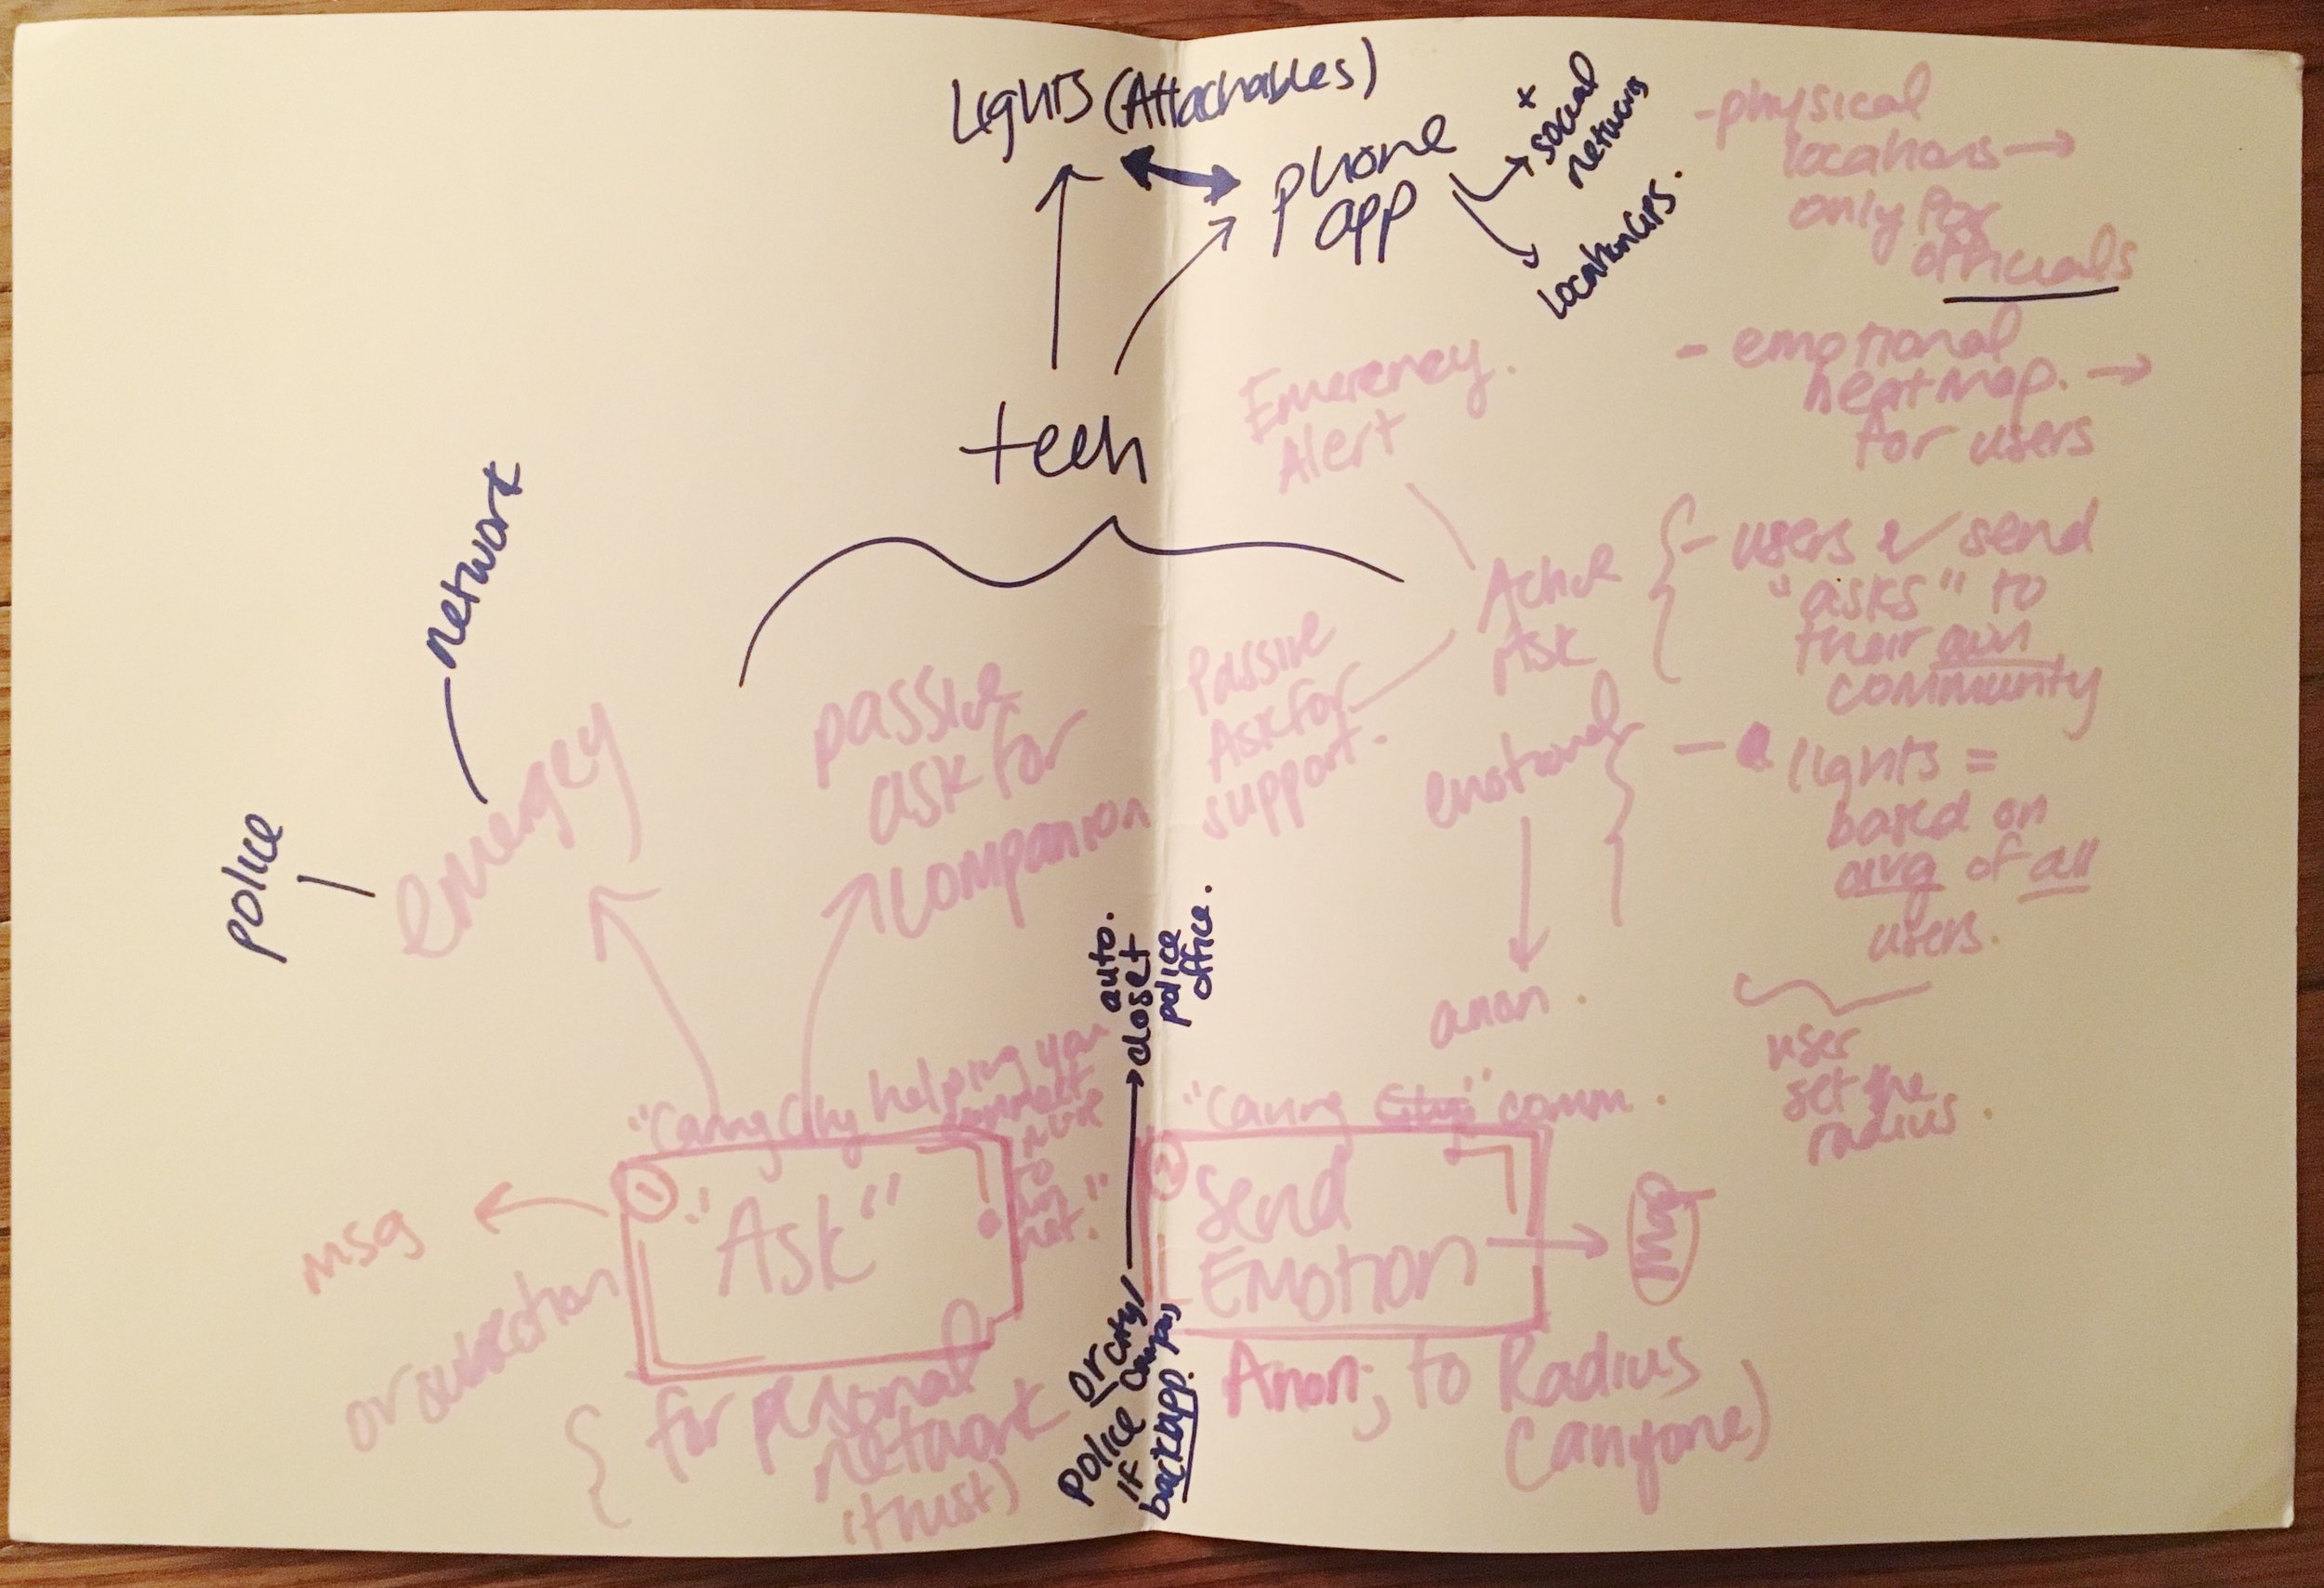 Lights (Attachables)
phone
app
x social
network
location GPS.
- physical
locations →
only for
officials
- emotional
heatmap. →
for users
tech
Emergency.
Alert
network
police
emergey
passive
ask for
companion
Passive
Ask for
support.
Active
Ask
emotional
anon.
- users send
"asks" to
their own
community
- lights =
based on
avg of all
users.
user
set the
radius.
auto.
closet
police
office.
Police or city/
if campus
backapp.
"Caring City helping you
connect
not."
1
"Ask"
msg
or subection
for personal
network
(trust)
"Caring City" comm.
2
Send
Emotion
Anon; to Radius
(anyone)